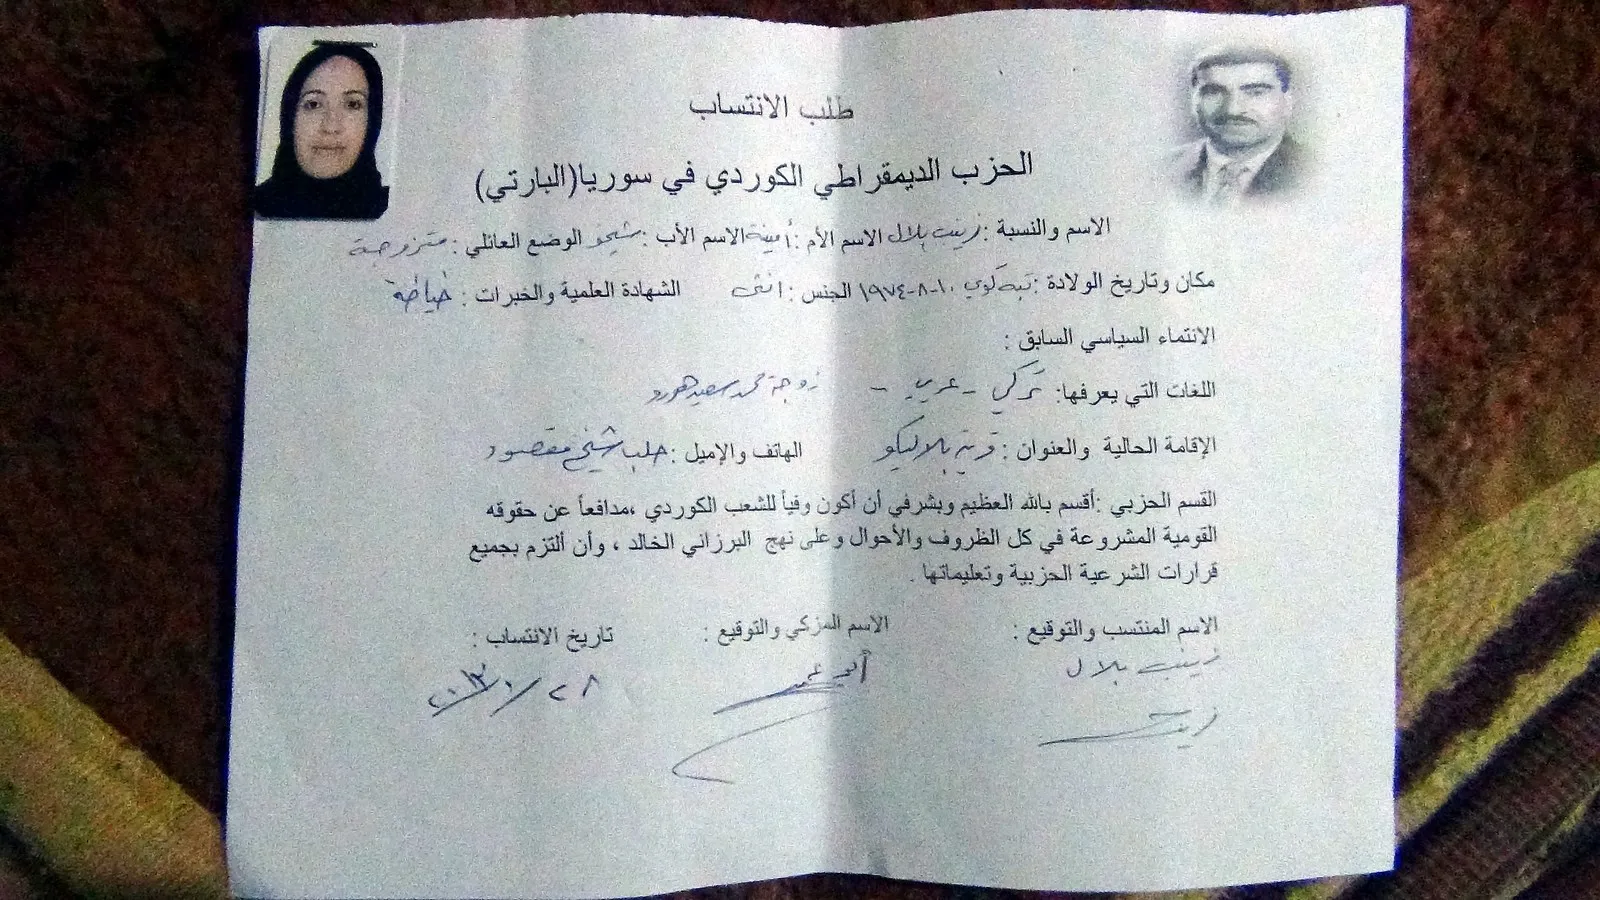 طلب الانتساب
الحزب الديمقراطي الكوردي في سوريا(البارتي)
الاسم والنسبة : زينب بلال الاسم الأم : أمينة الاسم الأب : شيخو الوضع العائلي : متزوجة
مكان وتاريخ الولادة : تبه كوي ١٠-٨-١٩٧٤ الجنس : انثى الشهادة العلمية والخبرات : خياطة
الانتماء السياسي السابق :
اللغات التي يعرفها: تركي - عربي - زوجة محمد سعيد
الإقامة الحالية والعنوان : قرية بلاليكو الهاتف والإميل : حلب شيخ مقصود
القسم الحزبي :أقسم بالله العظيم وبشرفي أن أكون وفياً للشعب الكوردي ،مدافعاً عن حقوقه
القومية المشروعة في كل الظروف والأحوال وعلى نهج البرزاني الخالد ، وأن ألتزم بجميع
قرارات الشرعية الحزبية وتعليماتها .
الاسم المنتسب والتوقيع : الاسم المزكي والتوقيع : تاريخ الانتساب :
زينب بلال
زينب